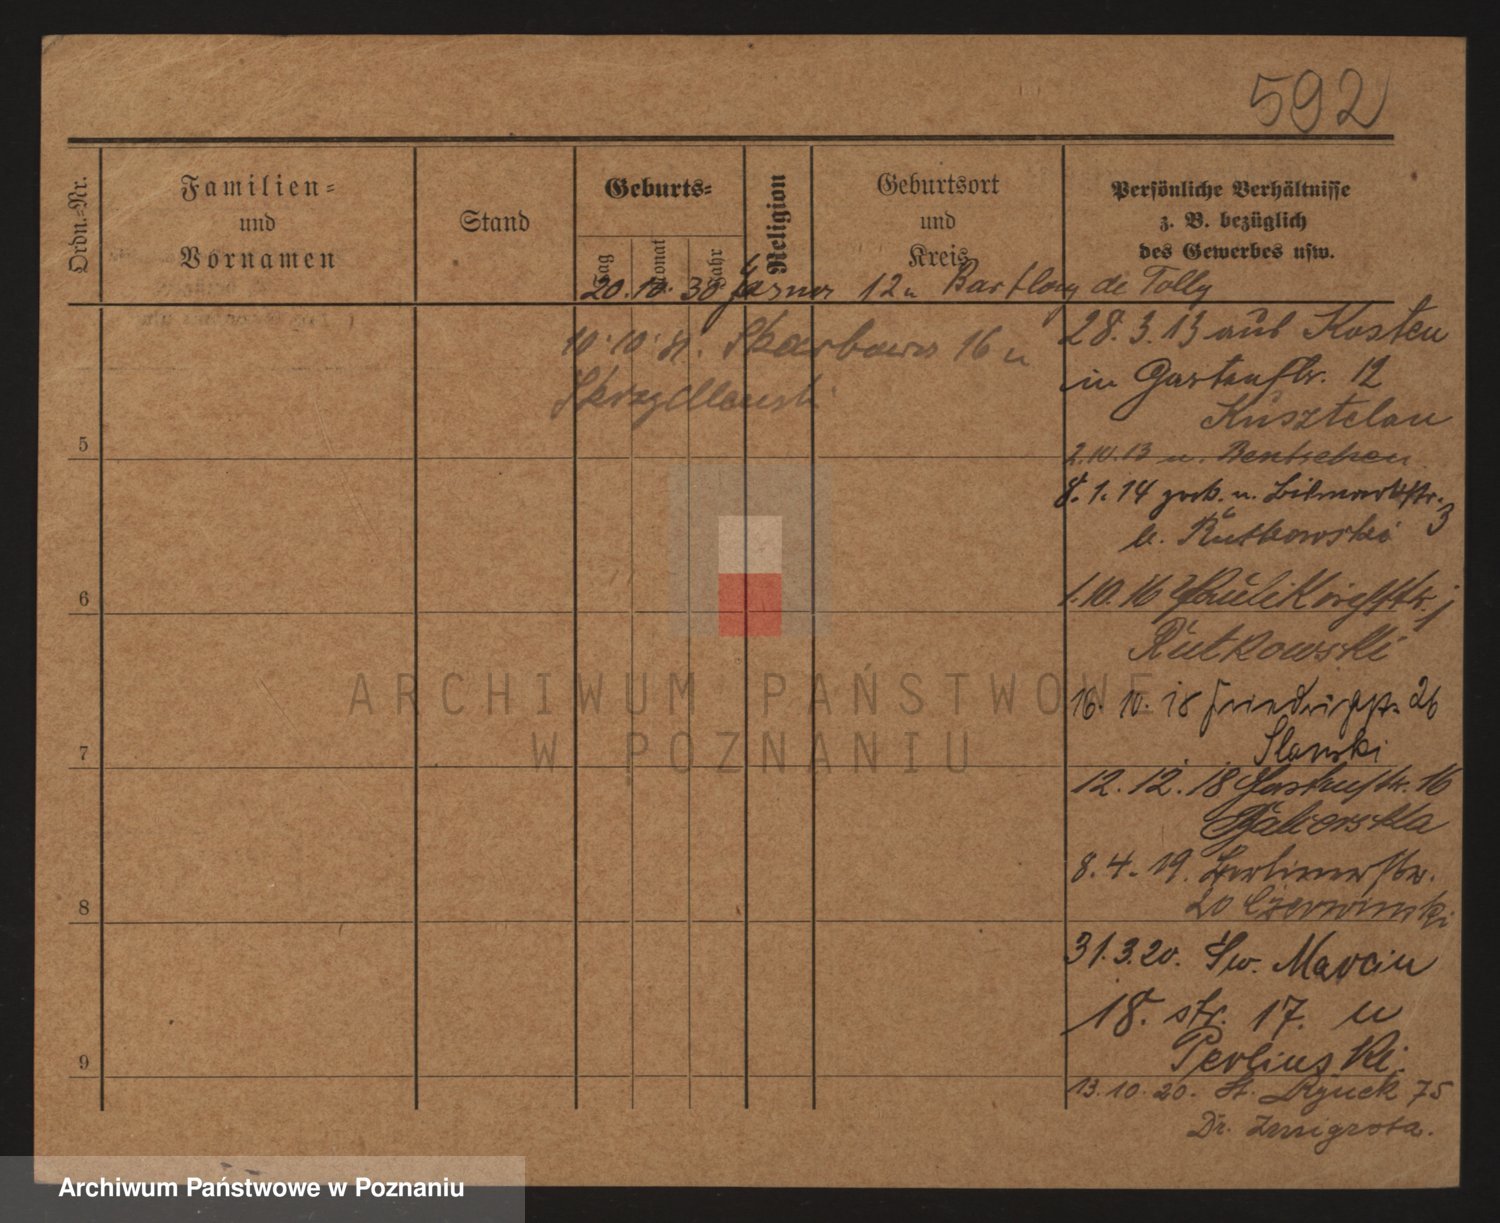 592
Ordn.-Nr.
Familien-
und
Vornamen
Stand
Geburts-
Tag
Monat
Jahr
Religion
Geburtsort
und
Kreis
Persönliche Verhältnisse
z. B. bezüglich
des Gewerbes usw.
20. 10. 30 12 u de Tolly
10. 10. Skarbowa 16 u
28. 3. 13 aus Kosten
in Gartenstr. 12
2. 10. 13 n. Bentschen
5
8. 1. 14 zurk. n. Bismarckstr. 3
b. Rutkowski
1. 10. 16
6
Rutkowski
16. 10. 18 Friedrichstr. 26
Slawski
7
12. 12. 18 Gartenstr. 16
8. 4. 19. Berlinerstr.
20 Czerwinski
8
31. 3. 20. Św. Marcin
18. str. 17. u
Perlinski.
9
13. 10. 20. St. Rynek 75
Dr. Zmigroda.
ARCHIWUM PAŃSTWOWE
W POZNANIU
Archiwum Państwowe w Poznaniu